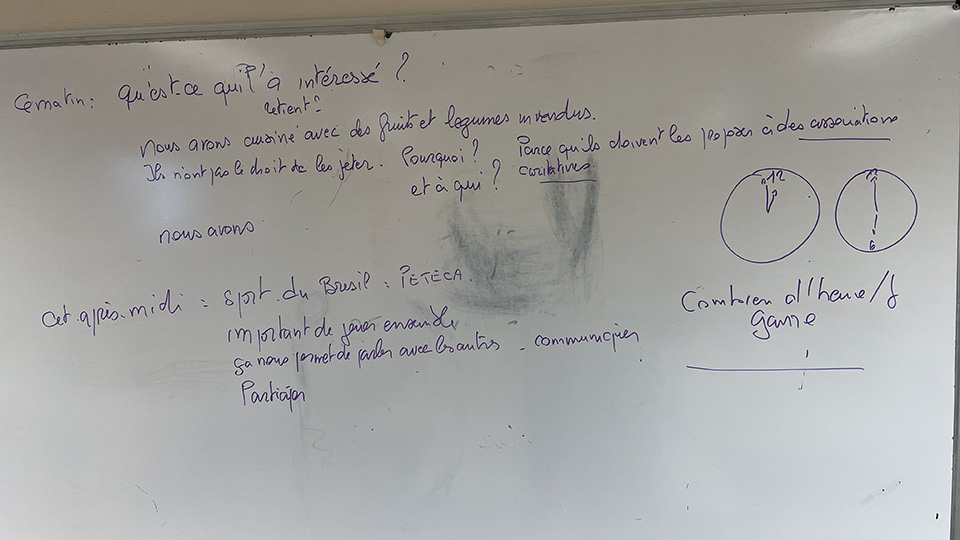 Ce matin : Qu'est-ce qui t'a intéressé ?
retient ?
Nous avons cuisiné avec des fruits et legumes invendus.
Ils n'ont pas le droit de les jeter. Pourquoi ? Parce qu'ils doivent les proposer à des associations
et à qui ? caritatives
12
6
nous avons
Cet après-midi : Sport du Bresil : PETECA.
important de jouer ensemble
ça nous permet de parler avec les autres - communiquer
Participer
Combien d'heure/